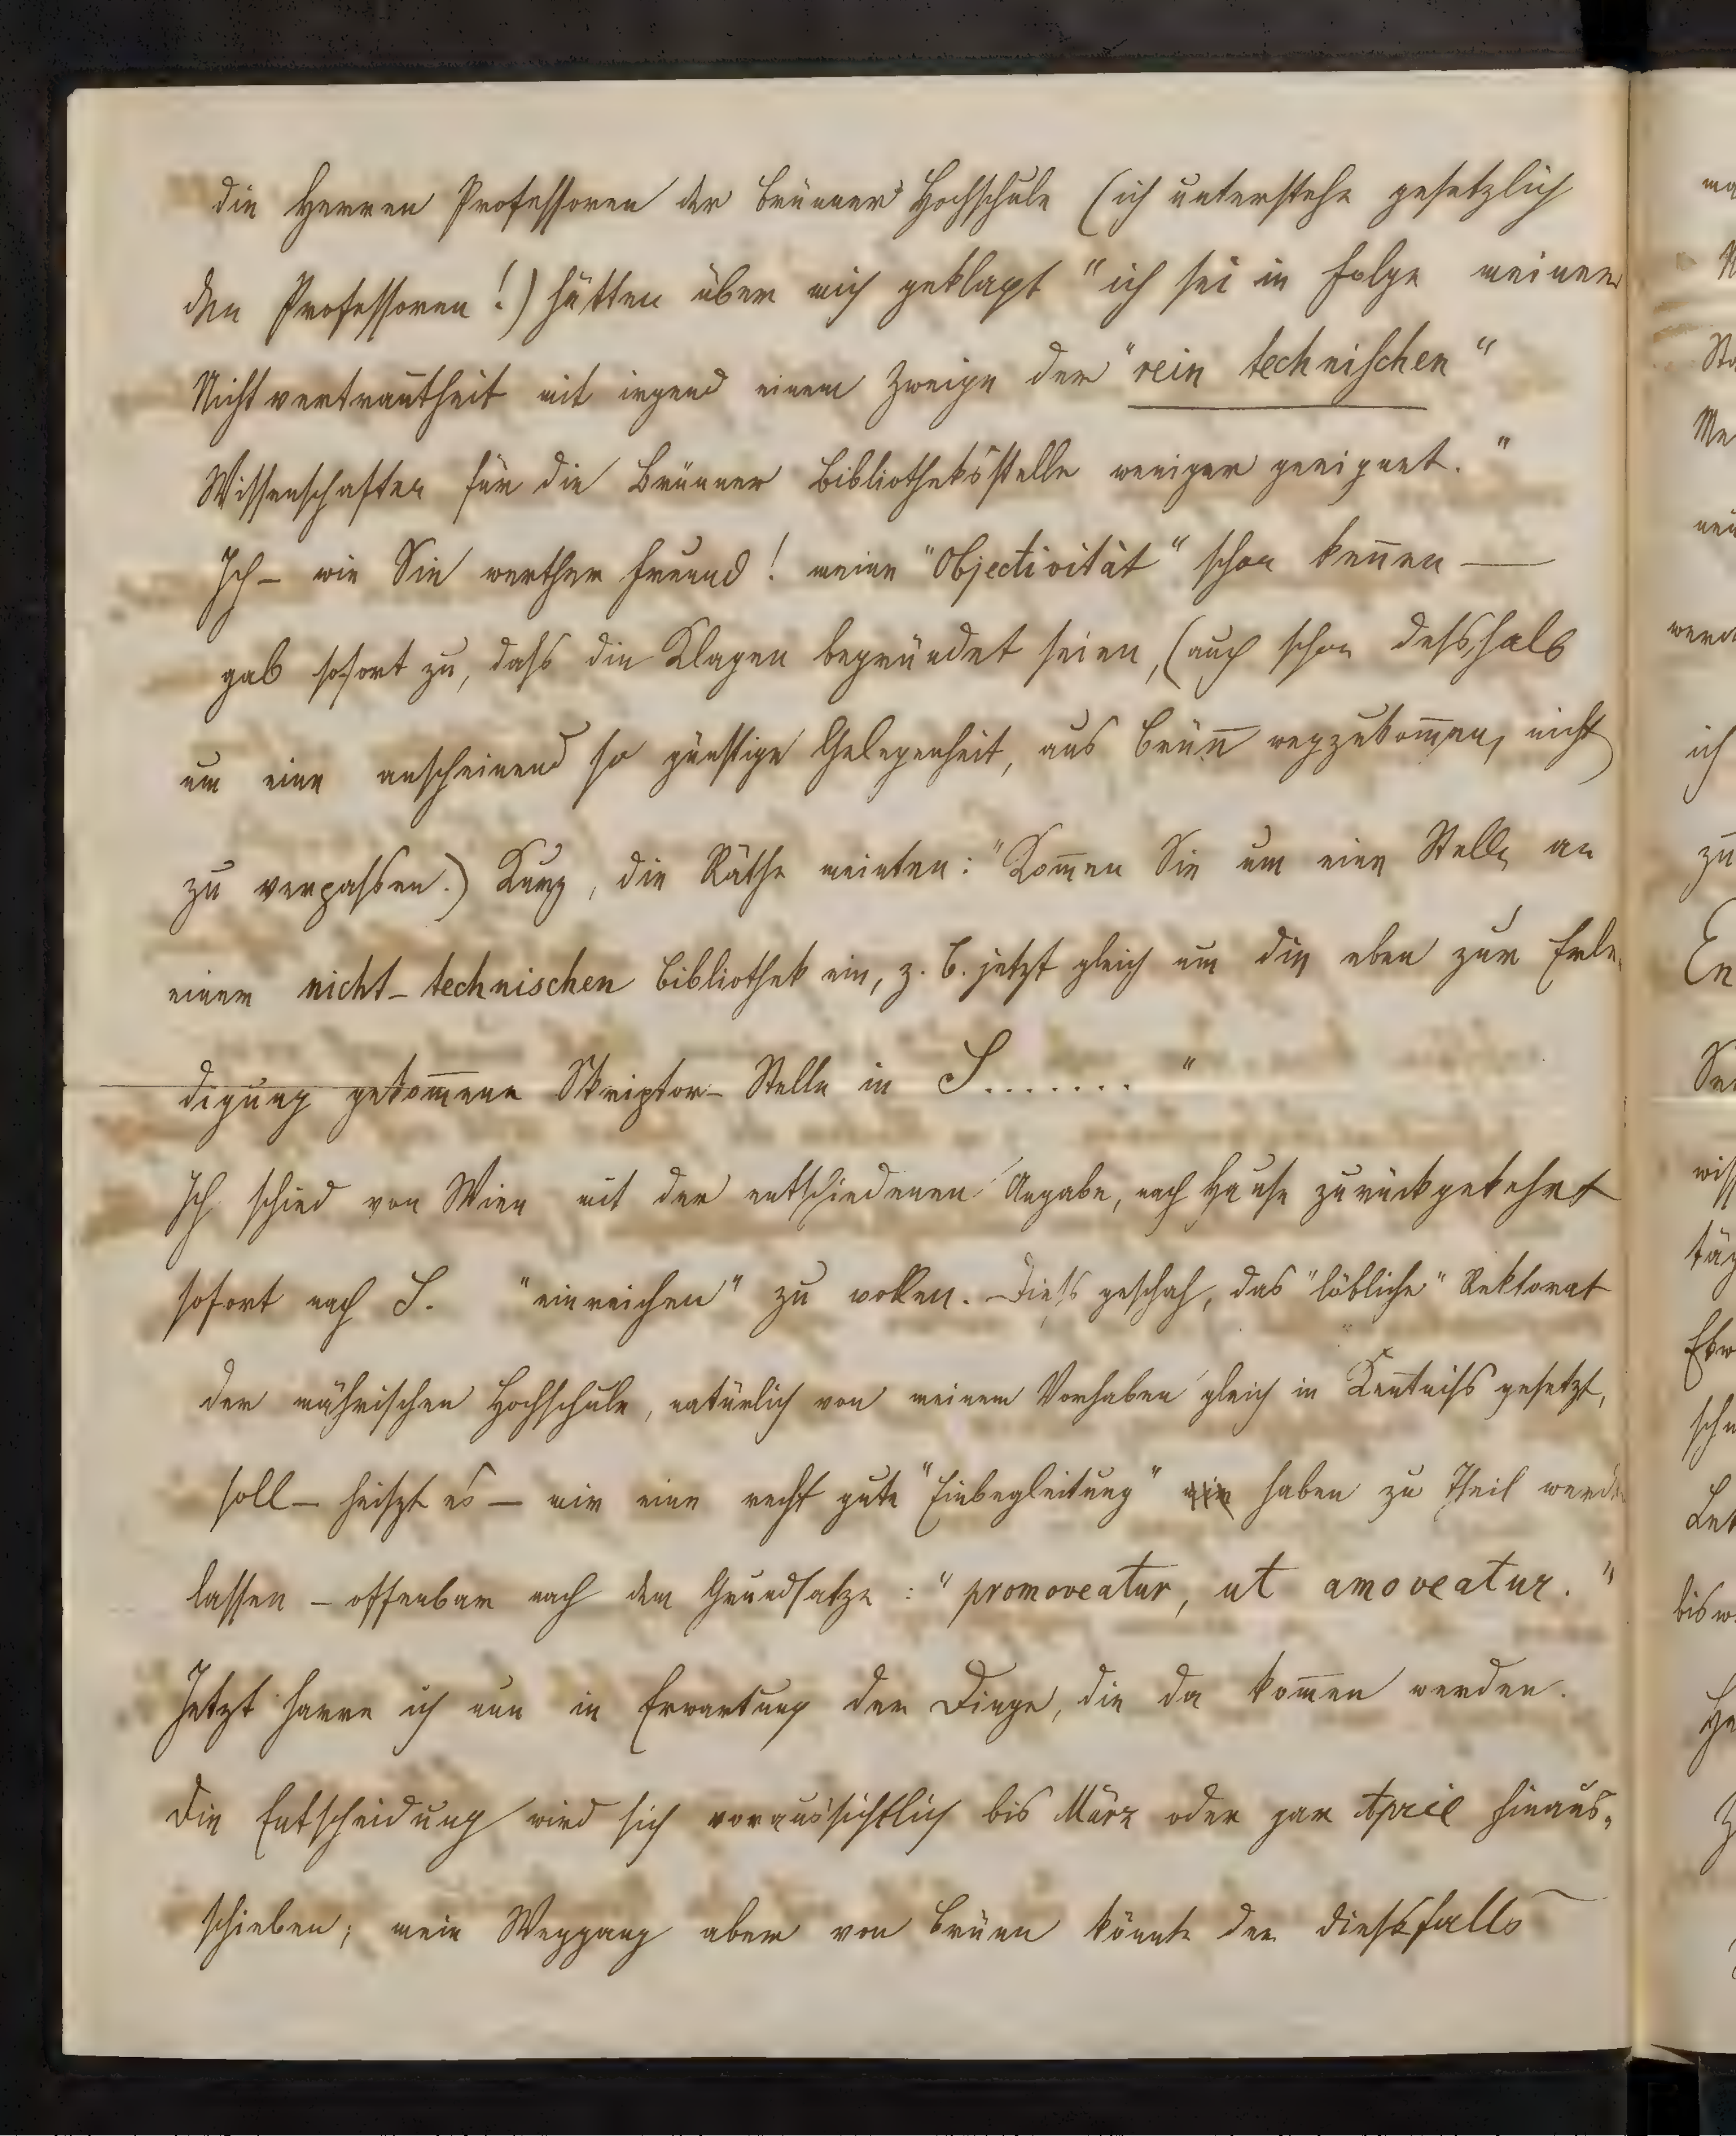 die Herren Professoren der Brünner Hochschule (ich unterstehe gesetzlich
den Professoren!) hätten über mich geklagt "ich sei in Folge meiner
Nichtvertrautheit mit irgend einem Zweige der "rein technischen"
Wissenschaften für die Brünner Bibliotheksstelle weniger geeignet."
Ich – wie Sie werther Freund! meine "Objectivität" schon keñen —
gab sofort zu, daſs die Klagen begründet seien, (auch schon deſshalb
um eine anscheinend so günstige Gelegenheit, aus Brün̄ wegzukom̄en, nicht
zu verpaſsen.) Kurz, die Räthe meinten: "Kom̄en Sie um eine Stelle an
einer nicht-technischen Bibliothek ein, z. B. jetzt gleich um die eben zur Erle-
digung gekom̄ene Skriptor-Stelle in S....... "
Ich schied von Wien mit der entschiedenen Angabe, nach Hause zurückgekehrt
sofort nach S. "einreichen" zu wollen. Dieſs geschah, das "löbliche" Rektorat
der mährischen Hochschule, natürlich von meinem Vorhaben gleich in Keñtniſs gesetzt,
soll – heiszt es – mir eine recht gute "Einbegleitung" haben zu Theil werden
lassen – offenbar nach dem Grundsatze: "promoveatur, ut amoveatur."
Jetzt harre ich nun in Erwartung der Dinge, die da kom̄en werden.
Die Entscheidung wird sich voraussichtlich bis März oder gar April hinaus-
schieben; mein Weggang aber von Brünn könnte der dieſsfalls
ma
Me
werd
ich
zu
En
bis